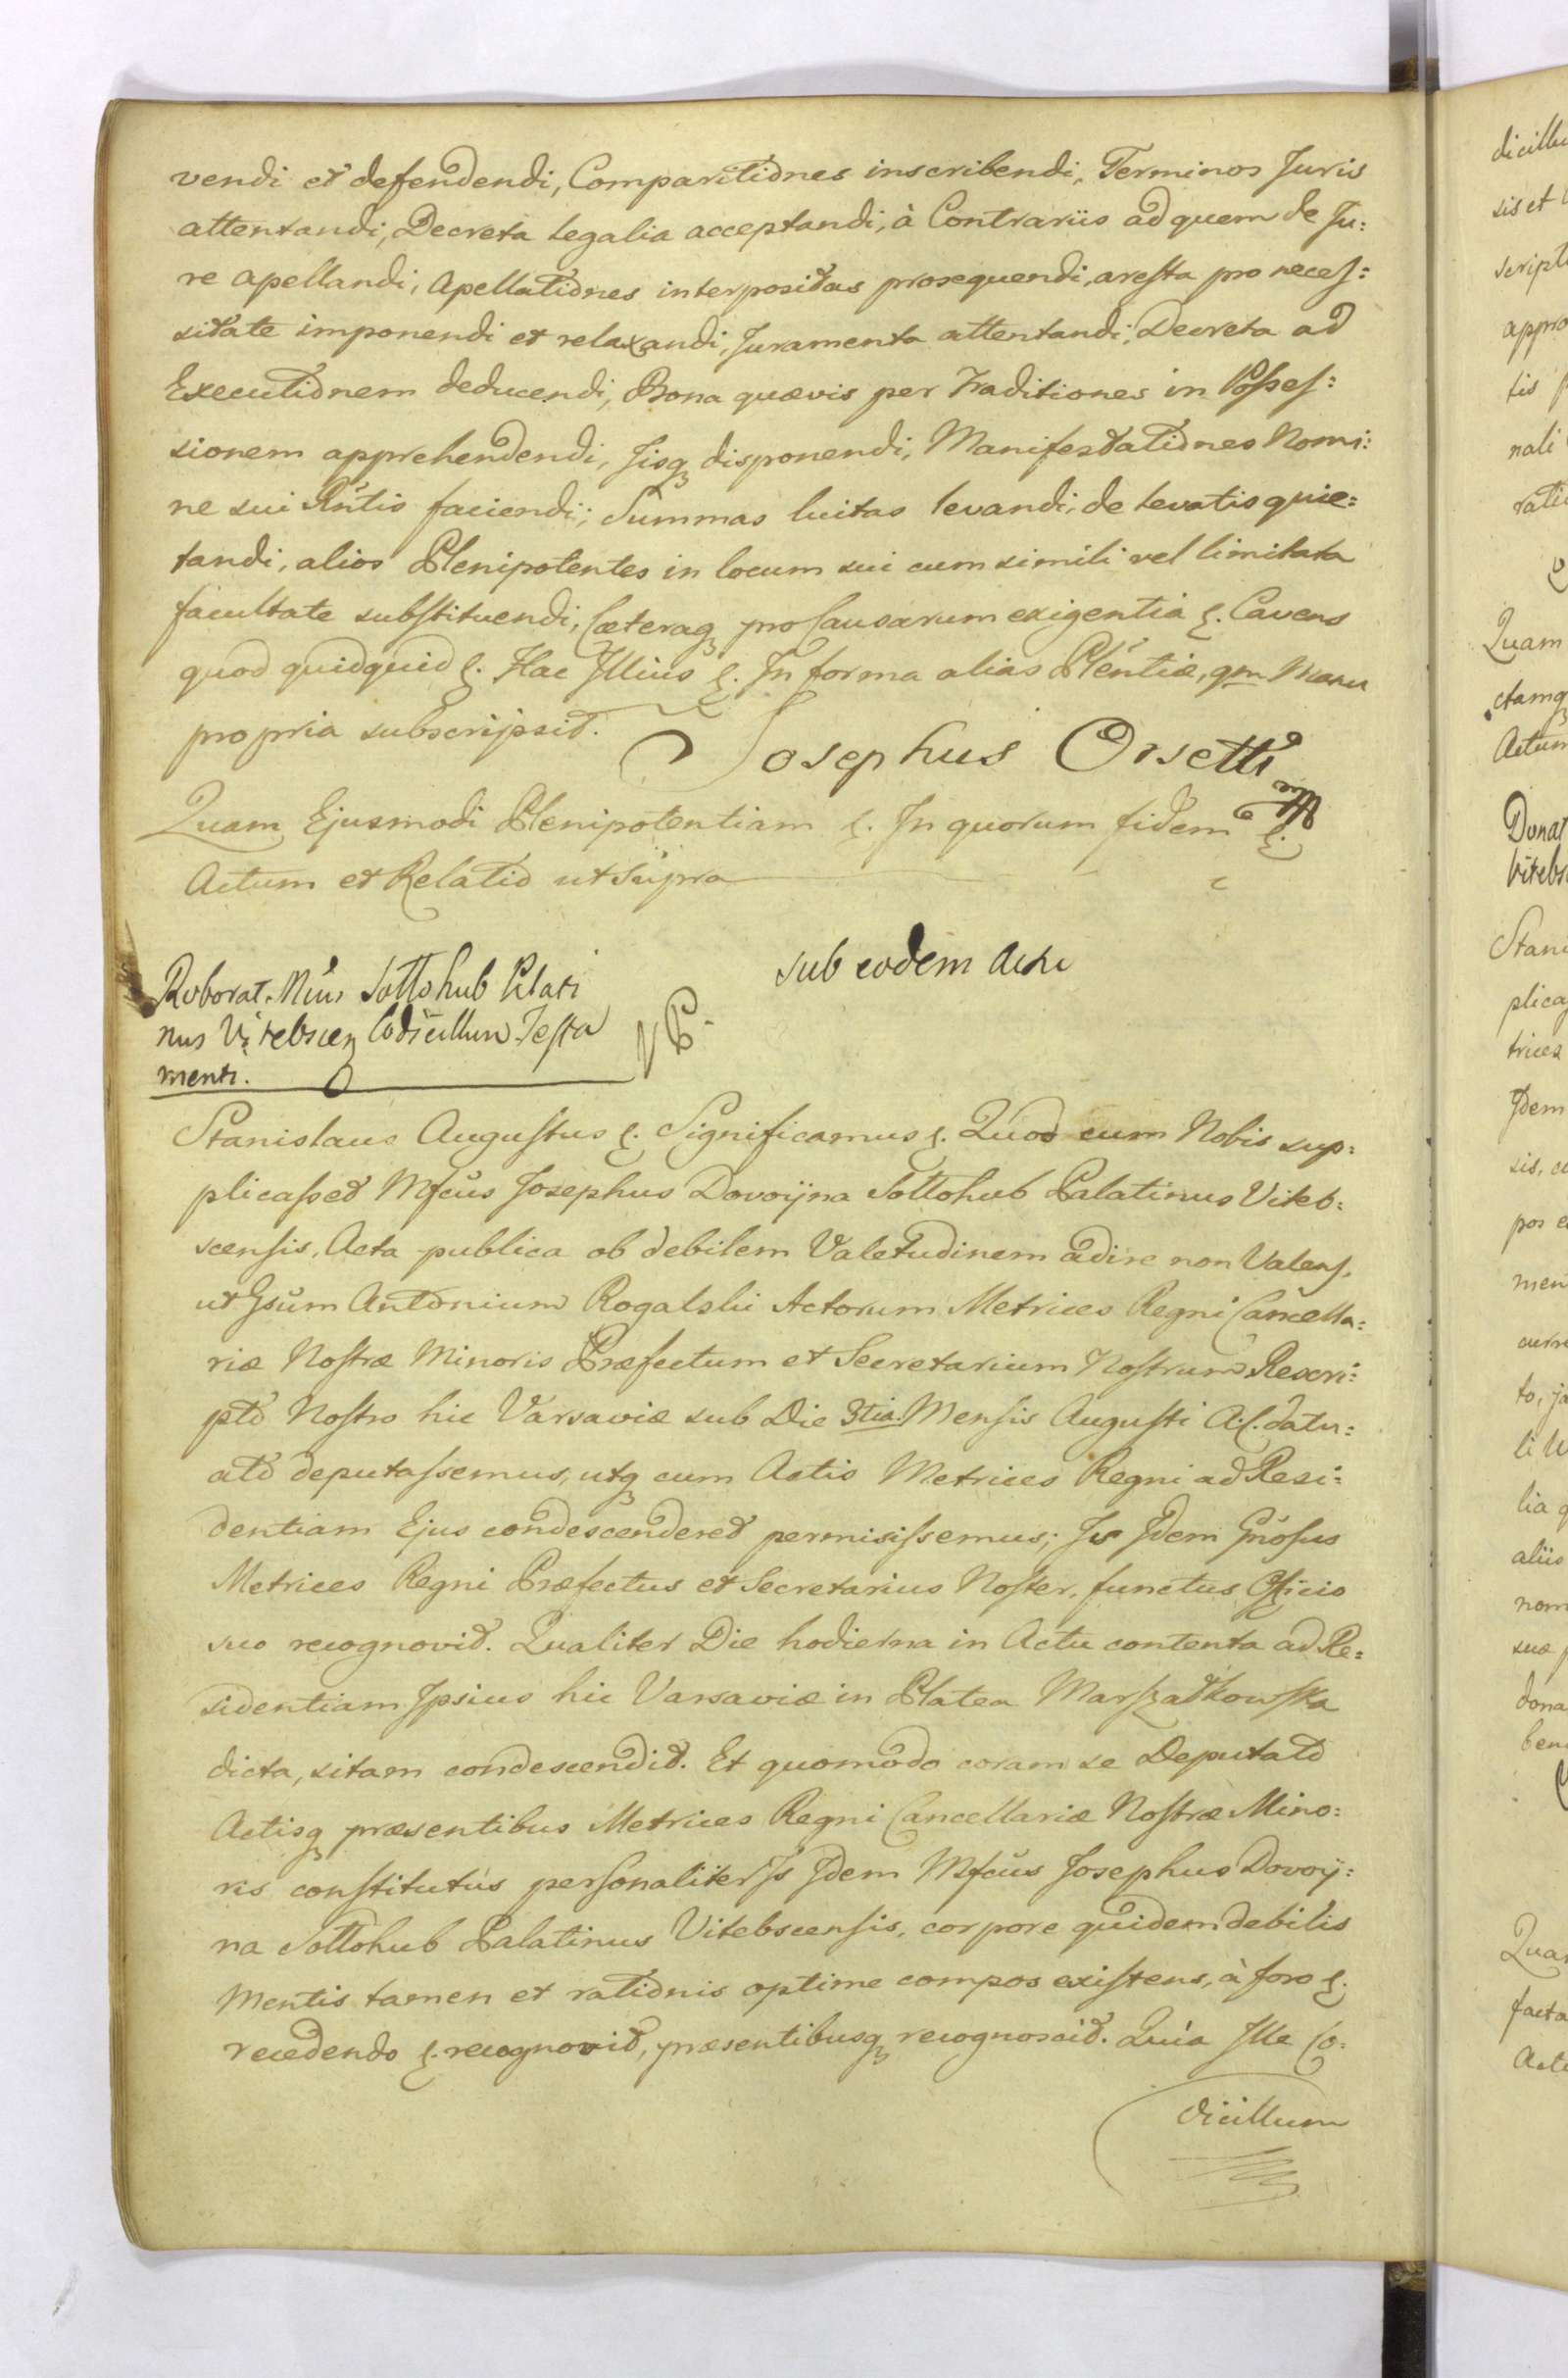 vendi et defendendi, Comparitiones inscribendi, Terminos Juris
attentandi, Decreta legalia acceptandi, à Contrariis ad quem de Ju:
re apellandi, Apellationes interpositas prosequendi, aresta pro neces:
sitate imponendi et relaxandi, Juramenta attentandi, Decreta ad
Executionem deducendi, Bona quævis per Traditiones in Posses:
sionem apprehendendi, Jisq disponendi, Manifestationes Nomi:
ne sui Pntis faciendi, Summas luitas levandi, de levatis quie:
tandi, alios Plenipotentes in locum sui cum simili vel limitata
facultate substituendi, Cæteraq pro Causarum exigentia &. Cavens
quod quidquid &. Hac Illius &. In forma alias Plentiæ, qm Manu
propria subscripsit. Josephus Orsetti mp
Quam Ejusmodi Plenipotentiam &. In quorum fidem &.
Actum et Relatio ut supra
sub eodem Actu
Roborat. Mcus Sottohub Plati
nus Vitebscen Codicillum Testa
menti.
Stanislaus Augustus &. Significamus &. Quod cum Nobis sup:
plicasset Mfcus Josephus Dovoyna Sottohub Palatinus Viteb:
scensis, Acta publica ob debilem Valetudinem adire non Valens,
ut Gsum Antonium Rogalski Actorum Metrices Regni Cancella:
riæ Nostræ Minoris Præfectum et Secretarium Nostrum Rescri:
pto Nostro hic Varsaviæ sub Die 3tia Mensis Augusti A. C. datu:
ato deputassemus, utq cum Actis Metrices Regni ad Resi:
dentiam Ejus condescenderet permisissemus; Is Idem Gnosus
Metrices Regni Præfectus et Secretarius Noster, functus Officio
suo recognovit. Qualiter Die hodierna in Actu contenta ad Re:
sidentiam Ipsius hic Varsaviæ in Platea Marszatkowska
dicta, sitam condescendit. Et quomodo coram se Deputato
Actisq præsentibus Metrices Regni Cancellariæ Nostræ Mino:
ris constitutus personaliter Is Idem Mfcus Josephus Dovoy:
na Sottohub Palatinus Vitebscensis, corpore quidem debilis
Mentis tamen et rationis optime compos existens, à foro &.
recedendo &. recognovit, præsentibusq recognoscit. Quia Ille Co:
dicillum